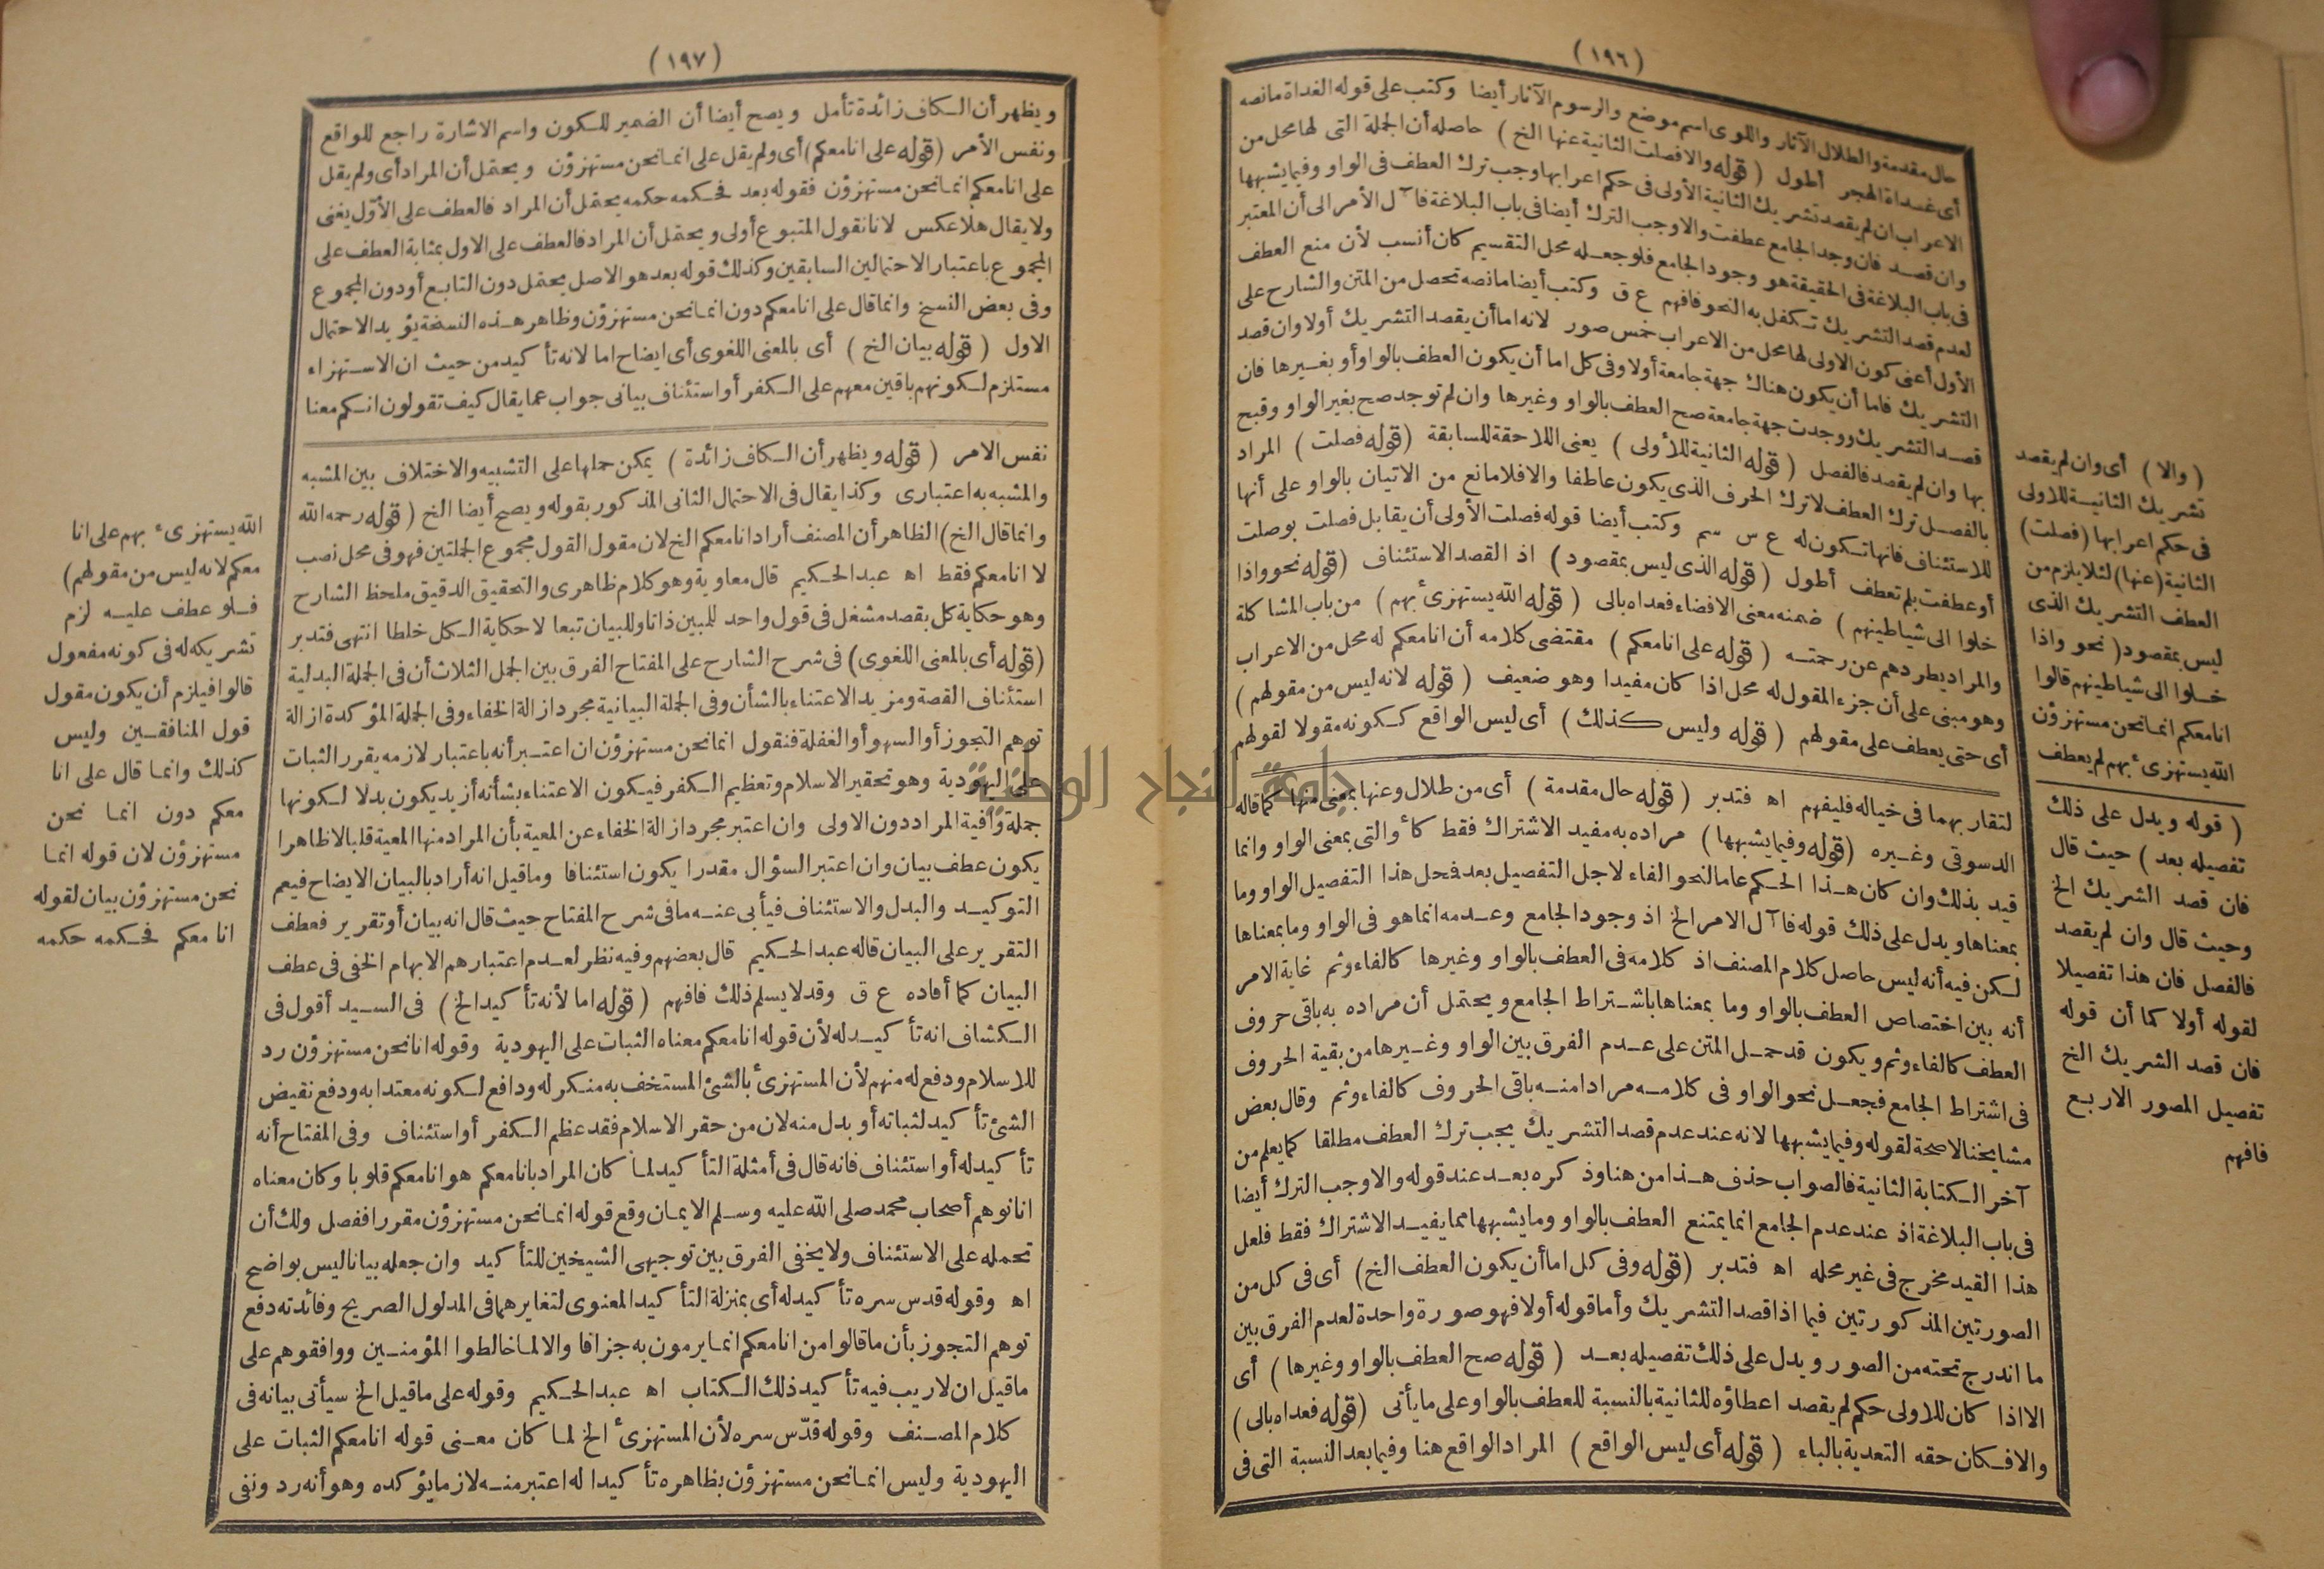 (١٩٦)
حال مقدمة والطلال الآثار واللوى اسم موضع والرسوم الآثار أيضا وكتب على قوله الغداة مانصه
أى غداة الهجر أطول (قوله والا فصلت الثانية عنها الخ) حاصله أن الجملة التى لها محل من
الاعراب ان لم يقصد تشريك الثانية الأولى فى حكم اعرابها وجب ترك العطف فى الواو وفيما يشبهها
وان قصد فان وجد الجامع عطفت والا وجب الترك أيضا فى باب البلاغة فآل الأمر الى أن المعتبر
فى باب البلاغة فى الحقيقة هو وجود الجامع فلو جعله محل التقسيم كان أنسب لأن منع العطف
لعدم قصد التشريك تكفل به النحو فافهم ع ق وكتب أيضا مانصه تحصل من المتن والشارح على
الأول أعنى كون الاولى لها محل من الاعراب خمس صور لانه اما أن يقصد التشريك أولا وان قصد
التشريك فاما أن يكون هناك جهة جامعة أولا وفى كل اما أن يكون العطف بالواو أو بغيرها فان
قصد التشريك ووجدت جهة جامعة صح العطف بالواو وغيرها وان لم توجد صح بغير الواو وقبح
بها وان لم يقصد فالفصل (قوله الثانية للأولى) يعنى اللاحقة للسابقة (قوله فصلت) المراد
بالفصل ترك العطف لا ترك الحرف الذى يكون عاطفا والا فلا مانع من الاتيان بالواو على أنها
للاستئناف فانها تكون له ع س سم وكتب أيضا قوله فصلت الأولى أن يقابل فصلت بوصلت
أو عطفت بلم تعطف أطول (قوله الذى ليس بمقصود) اذ القصد الاستئناف (قوله نحو واذا
خلوا الى شياطينهم) ضمنه معنى الافضاء فعداه بالى (قوله الله يستهزئ بهم) من باب المشاكلة
والمراد يطردهم عن رحمته (قوله على انا معكم) مقتضى كلامه أن انا معكم له محل من الاعراب
وهو مبنى على أن جزء المقول له محل اذا كان مفيدا وهو ضعيف (قوله لانه ليس من مقولهم)
أى حتى يعطف على مقولهم (قوله وليس كذلك) أى ليس الواقع ككونه مقولا لقولهم
لتقاربهما فى خياله فليفهم اه فتدبر (قوله حال مقدمة) أى من طلال وعنها بمعنى منها كما قاله
الدسوقى وغيره (قوله وفيما يشبهها) مراده به مفيد الاشتراك فقط كأو التى بمعنى الواو وانما
قيد بذلك وان كان هذا الحكم عاما لنحو الفاء لاجل التفصيل بعد فحل هذا التفصيل الواو وما
بمعناها ويدل على ذلك قوله فآل الامر الخ اذ وجود الجامع وعدمه انما هو فى الواو وما بمعناها
لكن فيه أنه ليس حاصل كلام المصنف اذ كلامه فى العطف بالواو وغيرها كالفاء وثم غاية الامر
أنه بين اختصاص العطف بالواو وما بمعناها باشتراط الجامع ويحتمل أن مراده به باقى حروف
العطف كالفاء وثم ويكون قد حمل المتن على عدم الفرق بين الواو وغيرها من بقية الحروف
فى اشتراط الجامع فجعل نحو الواو فى كلامه مرادا منه باقى الحروف كالفاء وثم وقال بعض
مشايخنا لا صحة لقوله وفيما يشبهها لانه عند عدم قصد التشريك يجب ترك العطف مطلقا كما يعلم من
آخر الكتابة الثانية فالصواب حذف هذا من هنا وذكره بعد عند قوله والا وجب الترك أيضا
فى باب البلاغة اذ عند عدم الجامع انما يمتنع العطف بالواو وما يشبهها مما يفيد الاشتراك فقط فلعل
هذا القيد مخرج فى غير محله اه فتدبر (قوله وفى كل اما أن يكون العطف الخ) أى فى كل من
الصورتين المذكورتين فيما اذا قصد التشريك وأما قوله أولا فهو صورة واحدة لعدم الفرق بين
ما اندرج تحته من الصور ويدل على ذلك تفصيله بعد (قوله صح العطف بالواو وغيرها) أى
الا اذا كان للاولى حكم لم يقصد اعطاؤه للثانية بالنسبة للعطف بالواو على ما يأتى (قوله فعداه بالى)
والا فكان حقه التعدية بالباء (قوله أى ليس الواقع) المراد الواقع هنا وفيما بعد النسبة التى فى
(والا) أى وان لم يقصد
تشريك الثانية للاولى
فى حكم اعرابها (فصلت)
الثانية (عنها) لئلا يلزم من
العطف التشريك الذى
ليس بمقصود (نحو واذا
خلوا الى شياطينهم قالوا
انا معكم انما نحن مستهزؤن
الله يستهزىء بهم لم يعطف
(قوله ويدل على ذلك
تفصيله بعد) حيث قال
فان قصد الشريك الخ
وحيث قال وان لم يقصد
فالفصل فان هذا تفصيلا
لقوله أولا كما أن قوله
فان قصد الشريك الخ
تفصيل المصور الاربع
فافهم
(١٩٧)
ويظهر أن الكاف زائدة تأمل ويصح أيضا أن الضمير للكون واسم الاشارة راجع للواقع
ونفس الأمر (قوله على انا معكم) أى ولم يقل على انما نحن مستهزؤن ويحتمل أن المراد أى ولم يقل
على انا معكم انما نحن مستهزؤن فقوله بعد فحكمه حكمه يحتمل أن المراد فالعطف على الأوّل يغنى
ولا يقال هلا عكس لانا نقول المتبوع أولى ويحتمل أن المراد فالعطف على الاول بمثابة العطف على
المجموع باعتبار الاحتمالين السابقين وكذلك قوله بعد هو الاصل يحتمل دون التابع أو دون المجموع
وفى بعض النسخ وانما قال على انا معكم دون انما نحن مستهزؤن وظاهر هذه النسخة يؤيد الاحتمال
الاول (قوله بيان الخ) أى بالمعنى اللغوى أى ايضاح اما لانه تأكيد من حيث ان الاستهزاء
مستلزم لكونهم باقين معهم على الكفر أو استئناف بيانى جواب عما يقال كيف تقولون انكم معنا
نفس الامر (قوله ويظهر أن الكاف زائدة) يمكن حملها على التشبيه والاختلاف بين المشبه
والمشبه به اعتبارى وكذا يقال فى الاحتمال الثانى المذكور بقوله ويصح أيضا الخ (قوله رحمه الله
وانما قال الخ) الظاهر أن المصنف أراد انا معكم الخ لان مقول القول مجموع الجملتين فهو فى محل نصب
لا انا معكم فقط اه عبد الحكيم قال معاوية وهو كلام ظاهرى والتحقيق الدقيق ملحظ الشارح
وهو حكاية كل بقصد مشغل فى قول واحد للمبين ذاتا وللبيان تبعا لا حكاية الكل خلطا انتهى فتدبر
(قوله أى بالمعنى اللغوى) فى شرح الشارح على المفتاح الفرق بين الجمل الثلاث أن فى الجملة البدلية
استئناف القصة ومزيد الاعتناء بالشأن وفى الجملة البيانية مجرد ازالة الخفاء وفى الجملة المؤكدة ازالة
توهم التجوز أو السهو أو الغفلة فنقول انما نحن مستهزؤن ان اعتبر أنه باعتبار لازمه يقرر الثبات
على اليهودية وهو تحقير الاسلام وتعظيم الكفر فيكون الاعتناء بشأنه أزيد يكون بدلا لكونها
جملة وافية المراد دون الاولى وان اعتبر مجرد ازالة الخفاء عن المعية بأن المراد منها المعية قلبا لا ظاهرا
يكون عطف بيان وان اعتبر السؤال مقدرا يكون استئنافا وما قيل انه أراد بالبيان الايضاح فيعم
التوكيد والبدل والاستئناف فيأبى عنه ما فى شرح المفتاح حيث قال انه بيان أو تقرير فعطف
التقرير على البيان قاله عبد الحكيم قال بعضهم وفيه نظر لعدم اعتبارهم الابهام الخفى فى عطف
البيان كما أفاده ع ق وقد لا يسلم ذلك فافهم (قوله اما لأنه تأكيد الخ) فى السيد أقول فى
الكشاف انه تأكيد له لأن قوله انا معكم معناه الثبات على اليهودية وقوله انا نحن مستهزؤن رد
للاسلام ودفع له منهم لأن المستهزئ بالشئ المستخف به منكر له ودافع لكونه معتدا به ودفع نقيض
الشئ تأكيد لثباته أو بدل منه لان من حقر الاسلام فقد عظم الكفر أو استئناف وفى المفتاح أنه
تأكيد له أو استئناف فانه قال فى أمثلة التأكيد لما كان المراد بانا معكم هو انا معكم قلوبا وكان معناه
انا نوهم أصحاب محمد صلى الله عليه وسلم الايمان وقع قوله انما نحن مستهزؤن مقررا ففصل ولك أن
تحمله على الاستئناف ولا يخفى الفرق بين توجيهى الشيخين للتأكيد وان جعله بيانا ليس بواضح
اه وقوله قدس سره تأكيد له أى بمنزلة التأكيد المعنوى لتغايرهما فى المدلول الصريح وفائدته دفع
توهم التجوز بأن ما قالوا من انا معكم انما يرمون به جزافا والا لما خالطوا المؤمنين ووافقوهم على
ما قيل ان لا ريب فيه تأكيد ذلك الكتاب اه عبد الحكيم وقوله على ما قيل الخ سيأتى بيانه فى
كلام المصنف وقوله قدّس سره لأن المستهزئ الخ لما كان معنى قوله انا معكم الثبات على
اليهودية وليس انما نحن مستهزؤن بظاهره تأكيدا له اعتبر منه لازما يؤكده وهو أنه رد ونفى
الله يستهزىء بهم على انا
معكم لانه ليس من مقولهم)
فلو عطف عليه لزم
تشريكه له فى كونه مفعول
قالوا فيلزم أن يكون مقول
قول المنافقين وليس
كذلك وانما قال على انا
معكم دون انما نحن
مستهزؤن لان قوله انما
نحن مستهزؤن بيان لقوله
انا معكم فحكمه حكمه
جامعة النجاح الوطنية